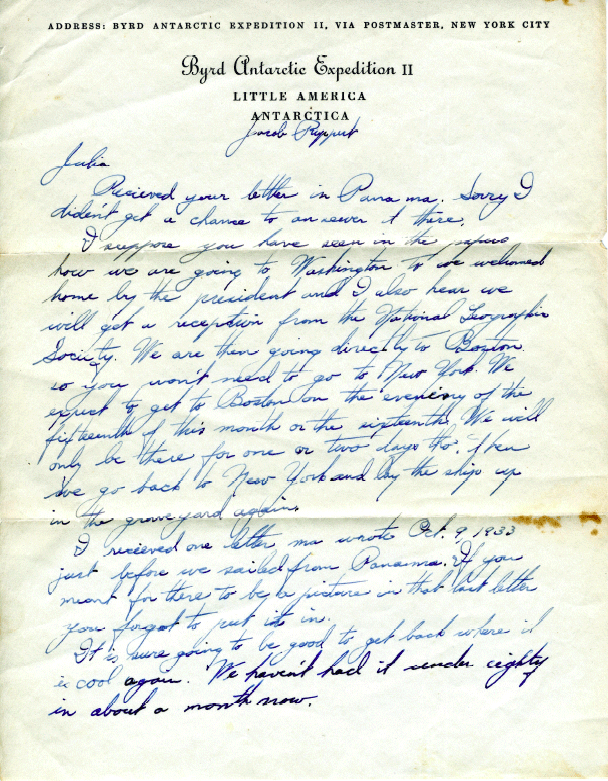 ADDRESS: BYRD ANTARCTIC EXPEDITION II, VIA POSTMASTER, NEW YORK CITY
Byrd Antarctic Expedition II
LITTLE AMERICA
ANTARCTICA
Jacob Ruppert
Julia
Recieved your letter in Panama. Sorry I
diden't get a chance to answer it there.
I suppose you have seen in the papers
how we are going to Washington to be welcomed
home by the president and I also hear we
will get a reception from the National Geographic
Society. We are then going directly to Boston
so you won't need to go to New York. We
expect to get to Boston on the evening of the
fifteenth of this month or the sixteenth. We will
only be there for one or two days tho. Then
we go back to New York and lay the ship up
in the graveyard again.
I recieved one letter ma wrote Oct. 9, 1933
just before we sailed from Panama. If you
meant for there to be a picture in that last letter
you forgot to put it in.
It is sure going to be good to get back where it
is cool again. We haven't had it under eighty
in about a month now.